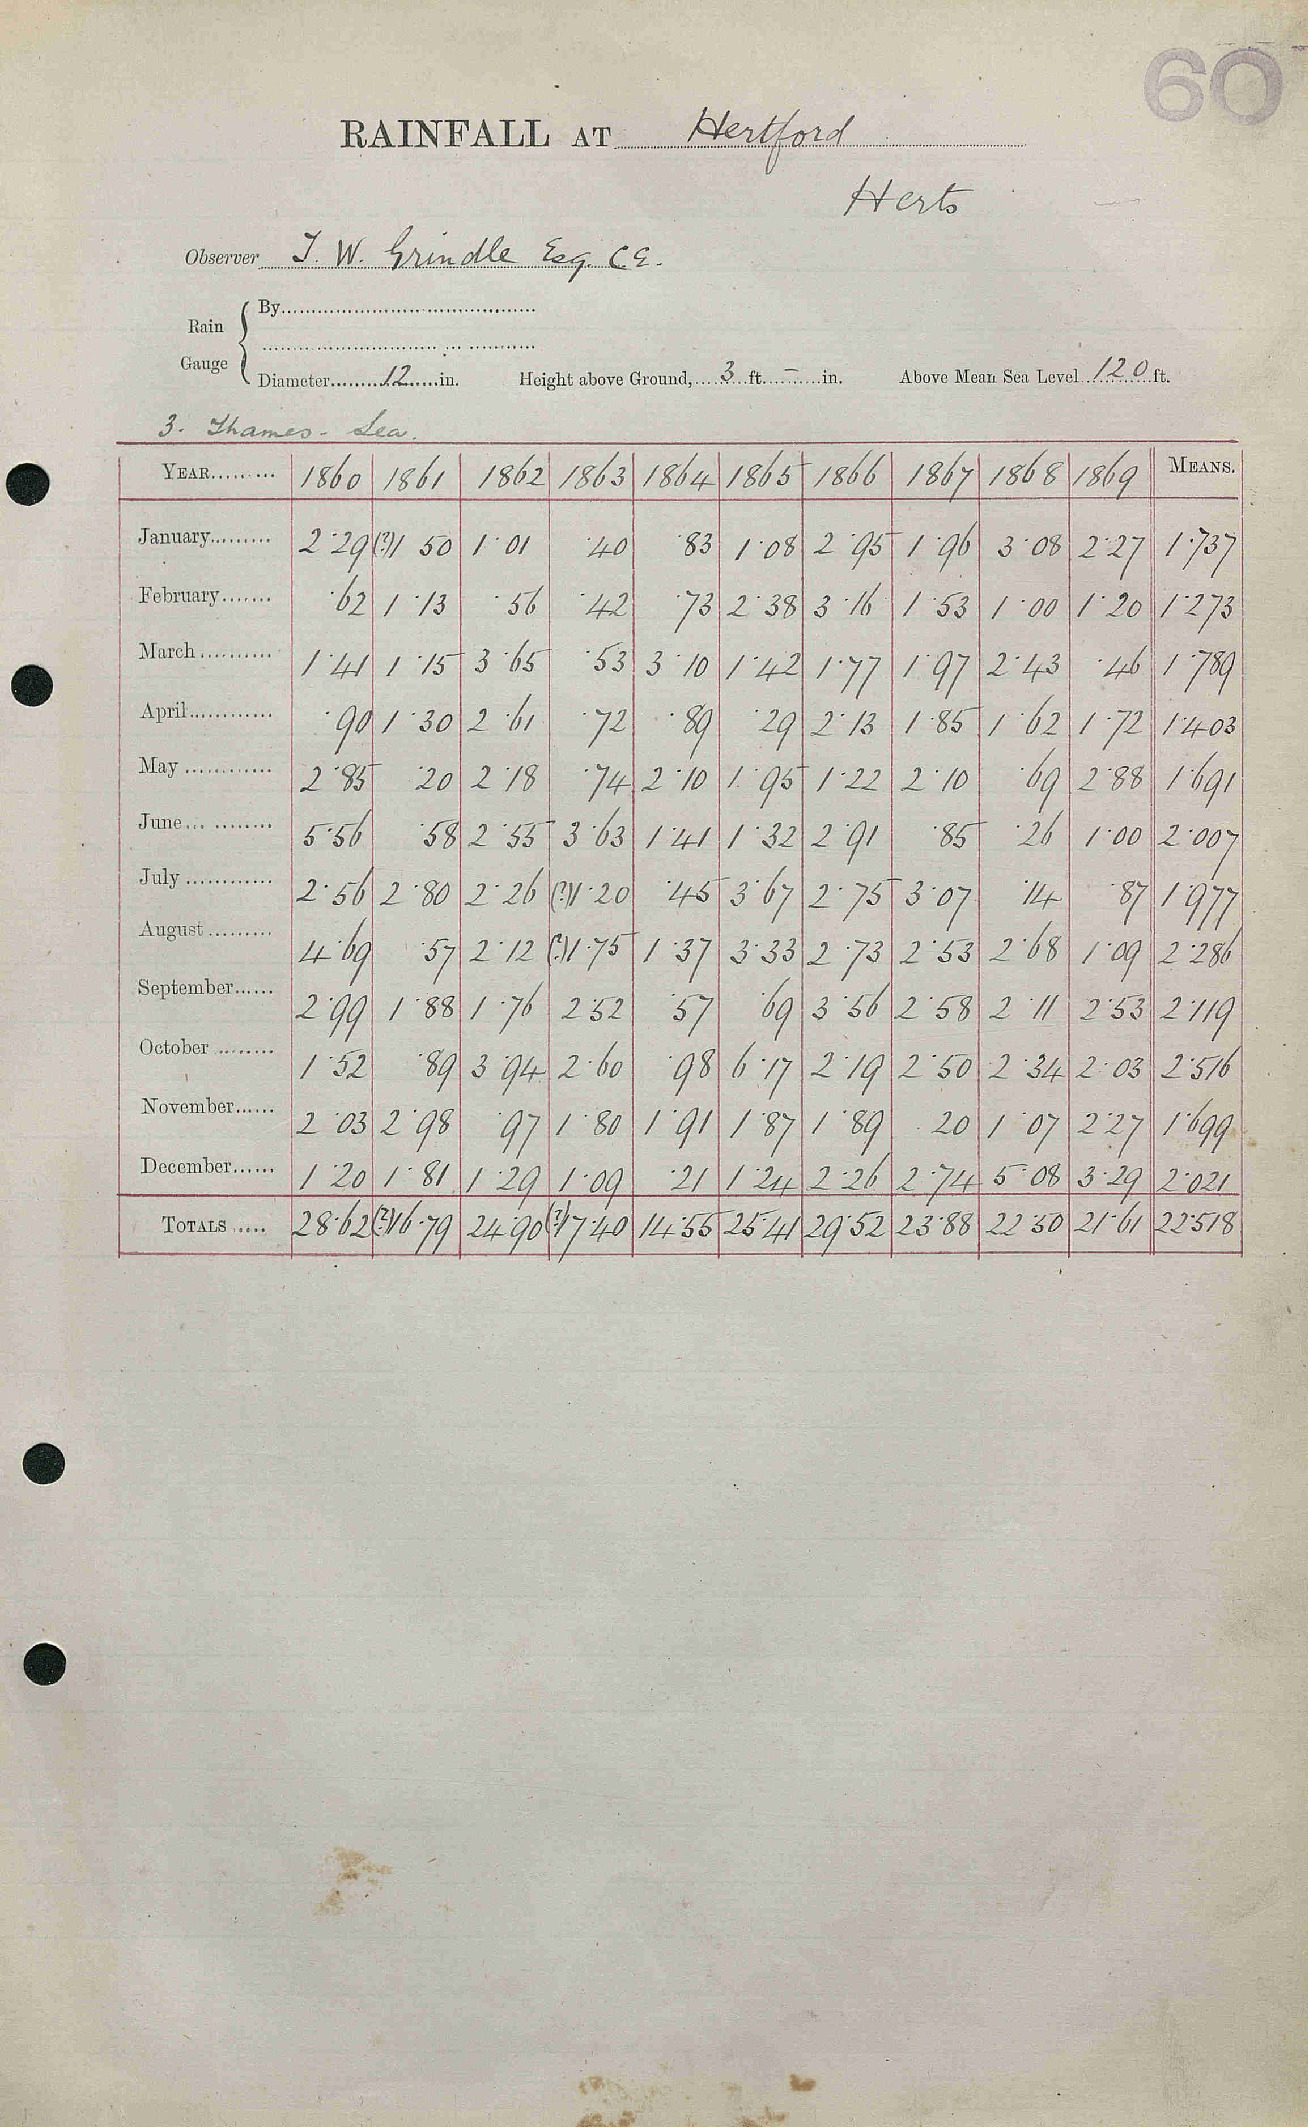 60
RAINFALL AT Hertford
Herts
Observer T. W. Grindle Esq. C.E.
Rain Gauge { By
Diameter 12 in. Height above Ground, 3 ft. – in. Above Mean Sea Level 120 ft.
3. Thames - Lea.
YEAR 1860 1861 1862 1863 1864 1865 1866 1867 1868 1869 MEANS.
January 2·29 (?)1·50 1·01 ·40 ·83 1·08 2·95 1·96 3·08 2·27 1·737
February ·62 1·13 ·56 ·42 ·73 2·38 3·16 1·53 1·00 1·20 1·273
March 1·41 1·15 3·65 ·53 3·10 1·42 1·77 1·97 2·43 ·46 1·789
April ·90 1·30 2·61 ·72 ·89 ·29 2·13 1·85 1·62 1·72 1·403
May 2·85 ·20 2·18 ·74 2·10 1·95 1·22 2·10 ·69 2·88 1·691
June 5·56 ·58 2·55 3·63 1·41 1·32 2·91 ·85 ·26 1·00 2·007
July 2·56 2·80 2·26 (?)1·20 ·45 3·67 2·75 3·07 ·14 ·87 1·977
August 4·69 ·57 2·12 (?)1·75 1·37 3·33 2·73 2·53 2·68 1·09 2·286
September 2·99 1·88 1·76 2·52 ·57 ·69 3·56 2·58 2·11 2·53 2·119
October 1·52 ·89 3·94 2·60 ·98 6·17 2·19 2·50 2·34 2·03 2·516
November 2·03 2·98 ·97 1·80 1·91 1·87 1·89 ·20 1·07 2·27 1·699
December 1·20 1·81 1·29 1·09 ·21 1·24 2·26 2·74 5·08 3·29 2·021
TOTALS 28·62 (?)16·79 24·90 (?)17·40 14·55 25·41 29·52 23·88 22·50 21·61 22·518